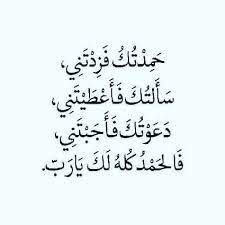 حَمِدْتُكُ فَزِدْتَنِي،
سَأَلتُكُ فَأَعْطَيْتَنِي،
دَعَوْتُكَ فَأَجَبْتَنِي،
فَالحَمْدُ كُلهُ لَكَ يَارَبّ.